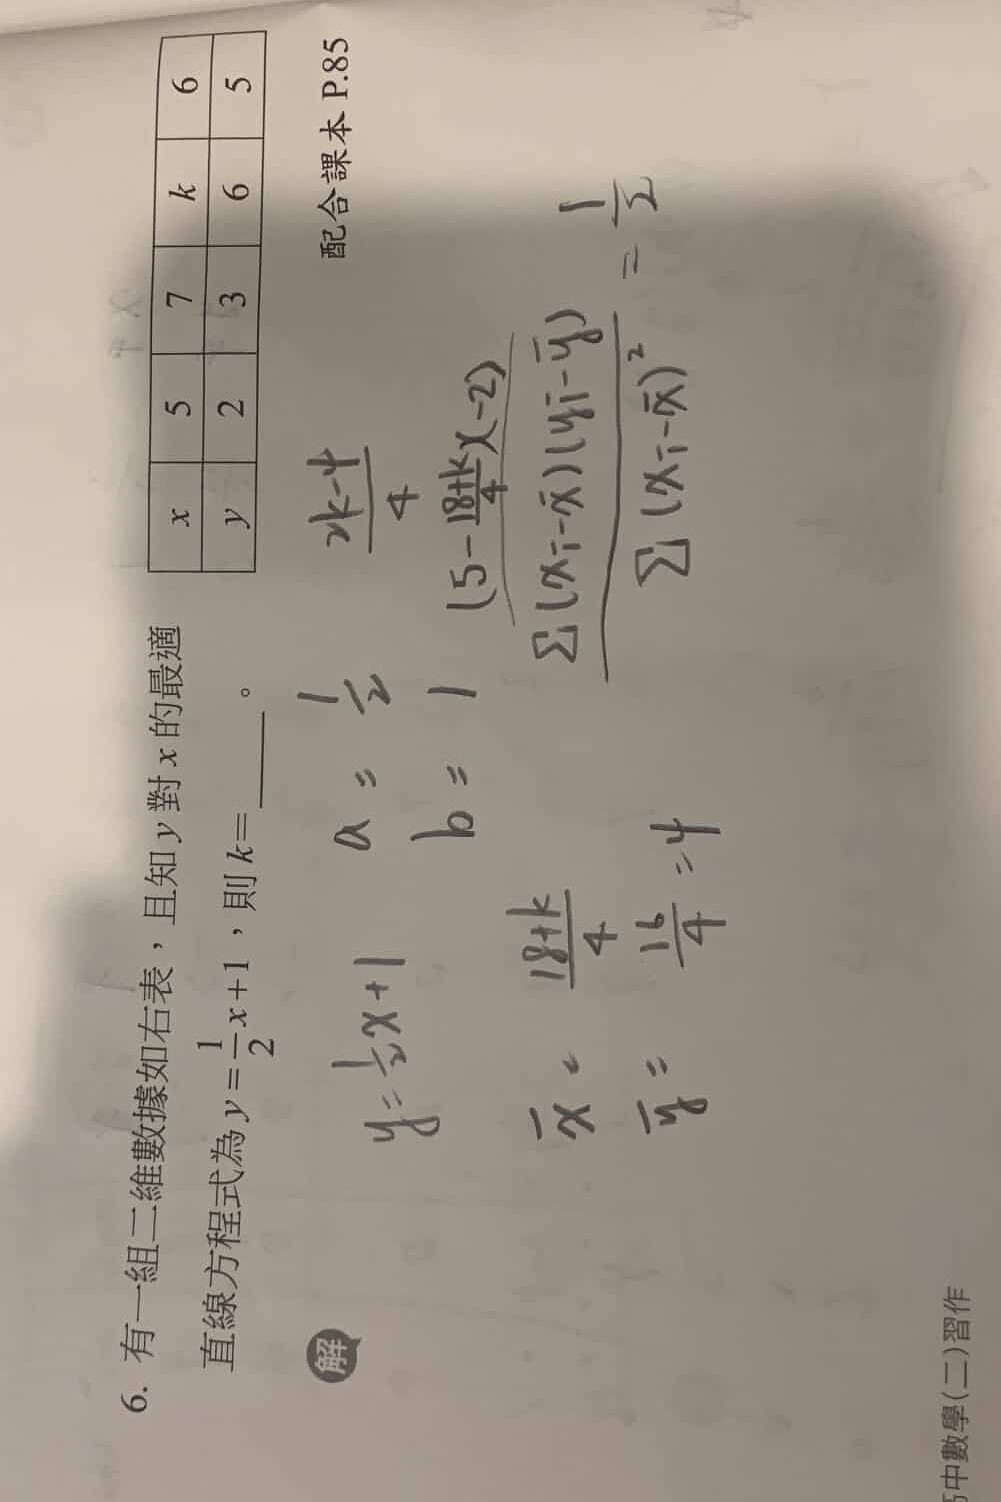 6. 有一組二維數據如右表，且知 y 對 x 的最適
直線方程式為 y=1/2x+1，則 k=____。
x 5 7 k 6
y 2 3 6 5
配合課本 P.85
解
y=1/2x+1
a = 1/2
b = 1
x̄ = (18+k)/4
ȳ = 16/4 = 4
(5-(18+k)/4)(-2)
Σ(xi-x̄)(yi-ȳ)/Σ(xi-x̄)² = 1/2
中數學(二)習作